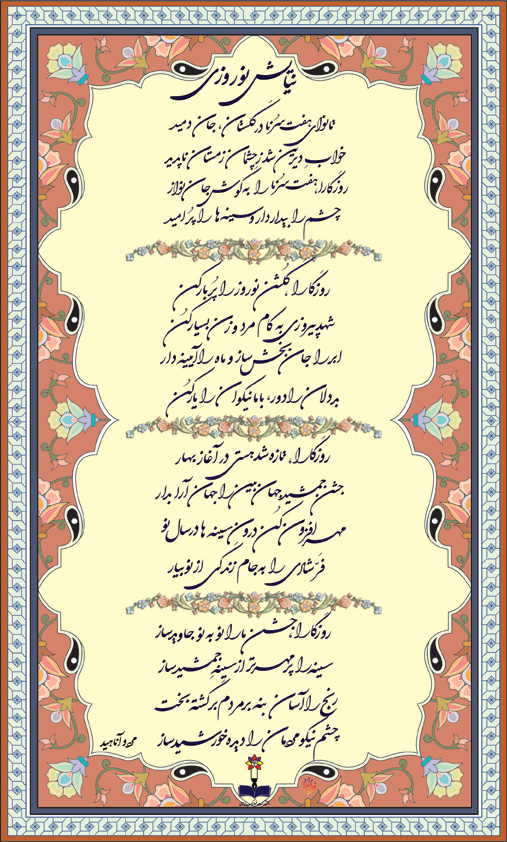 نیایش نوروزی
تا نوای هفت سُرنا در گلستان، جان دمید
خواب دیرین شد ز چشمان زمستان ناپدید
روزگارا، هفت سُرنا را به گوش جان نواز
چشم را بیدار دار و سینه ها را پُر امید
روزگارا، گلشن نوروز را پُر بار کن
شهد پیروزی به کام مرد و زن بسیار کن
ابر را جان بخش ساز و ماه را آیینه دار
بددلان را دور، با ما نیکوان را یار کن
روزگارا، تازه شد هستی در آغاز بهار
جشن جمشید جهان بین را جهان آرا بدار
مهر افزون کن درون سینه ها در سال نو
فرّ شادی را به جام زندگی از نو بیار
روزگارا، جشن ما را نو به نو جاوید ساز
سینه را پر مهرتر از سینهٔ جمشید ساز
رنج را آسان بنه بر مردم برگشته بخت
چشم نیکو مردمان را دیده خورشید ساز
آناهید